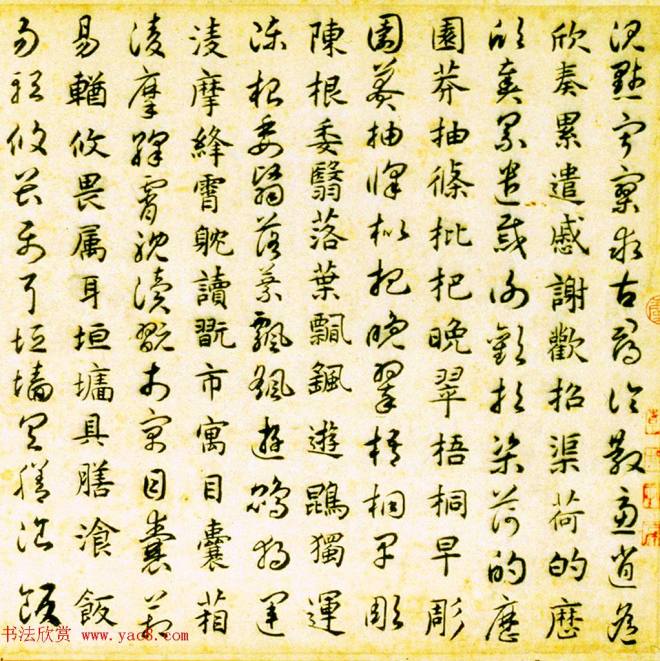 沉默寂寥求古尋論散慮逍遙
欣奏累遣慼謝歡招渠荷的歷
欣奏累遣慼謝歡招渠荷的歷
園莽抽條枇杷晚翠梧桐早彫
園莽抽條枇杷晚翠梧桐早彫
陳根委翳落葉飄颻遊鵾獨運
陳根委翳落葉飄颻遊鵾獨運
淩摩絳霄躭讀翫市寓目囊葙
淩摩絳霄躭讀翫市寓目囊葙
易輶攸畏属耳垣墻具膳飡飯
易輶攸畏属耳垣墻具膳飡飯
书法欣赏 www.yac8.com